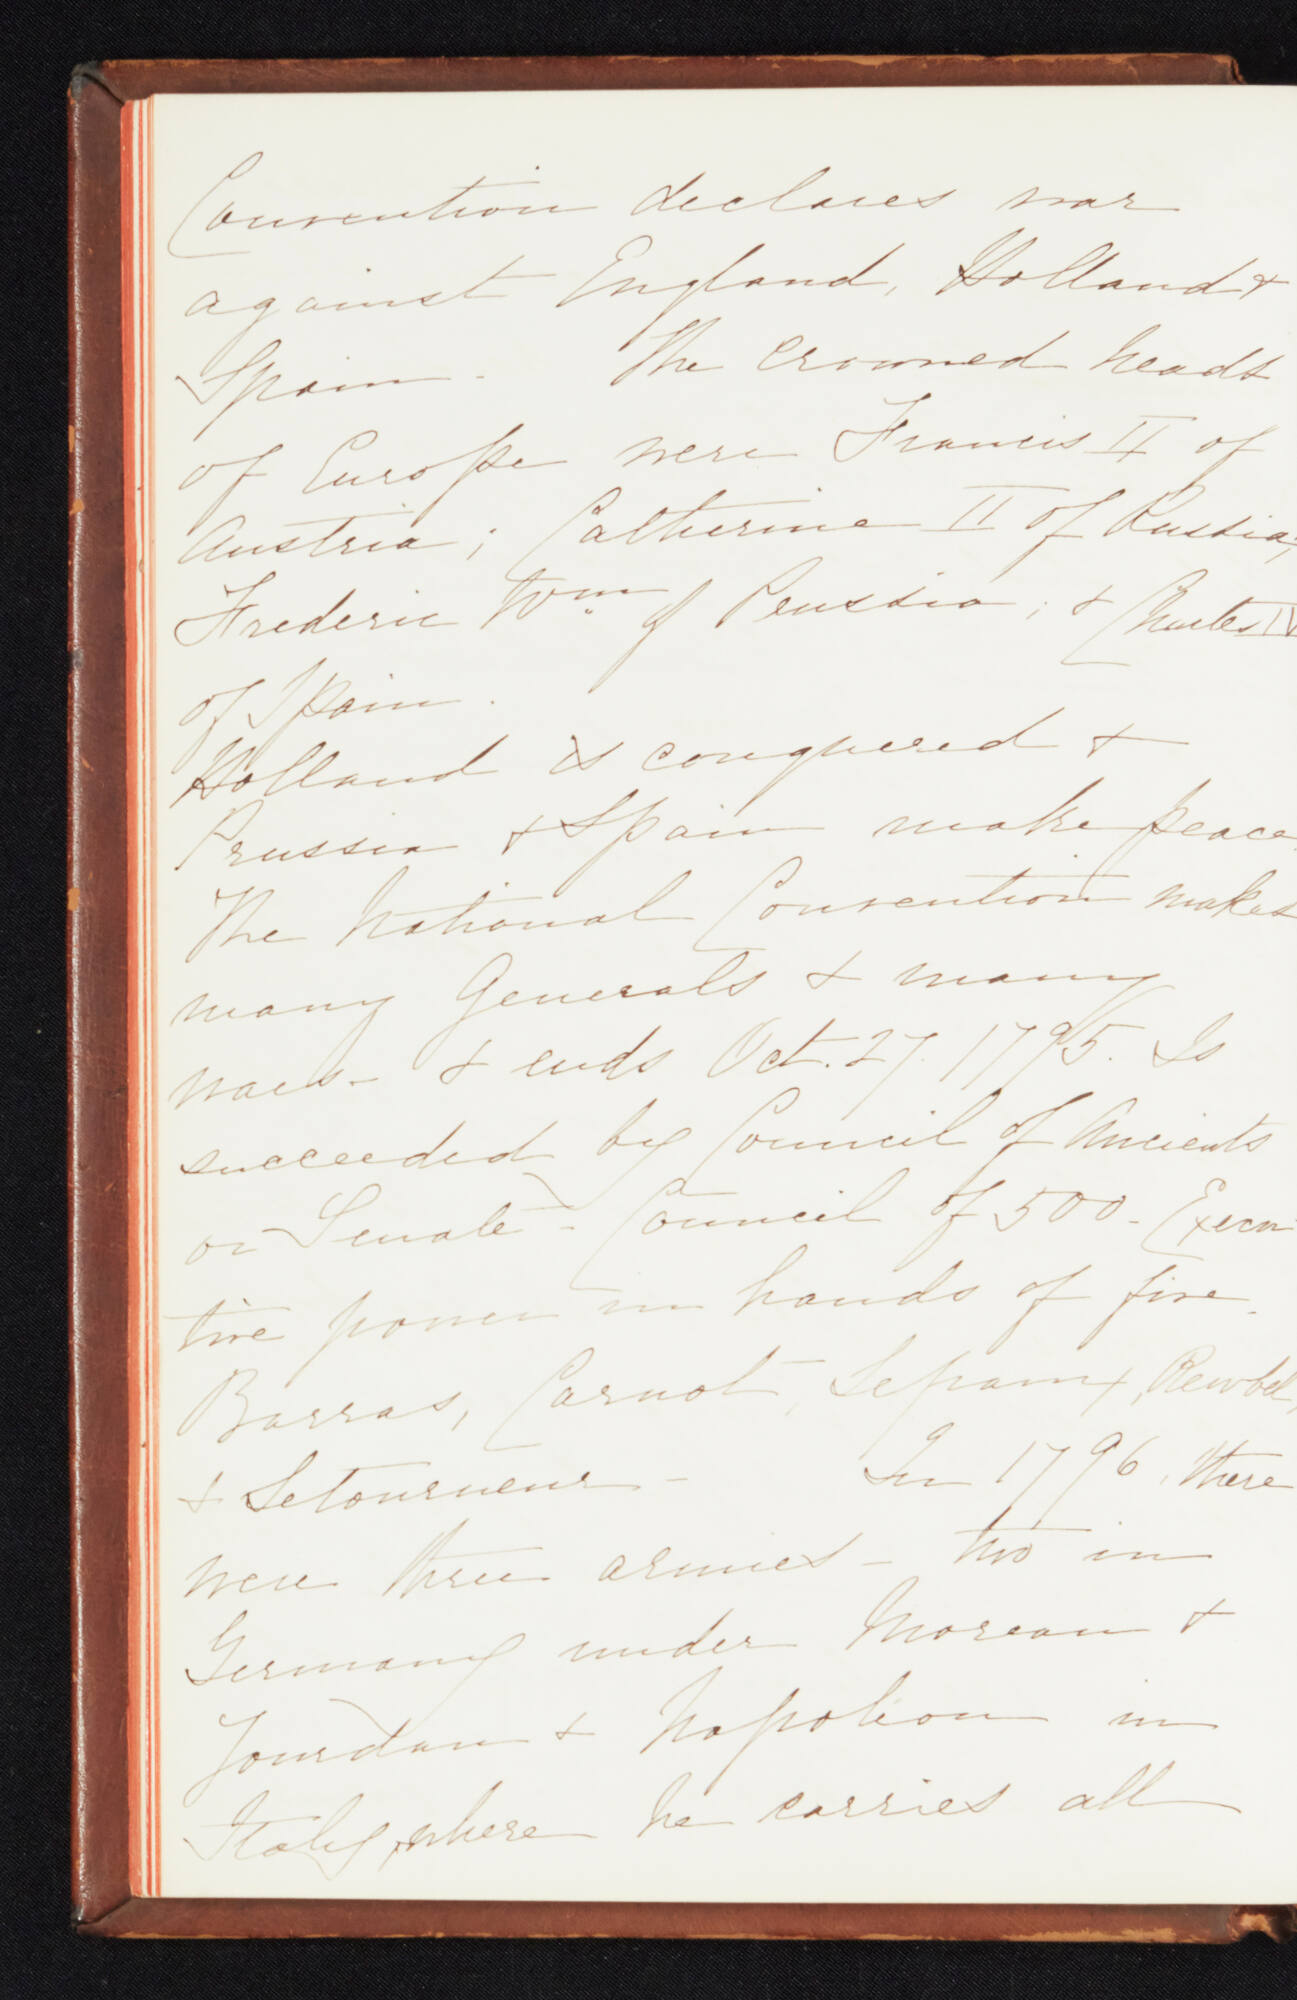 Convention declares war
against England, Holland &
Spain - The crowned heads
of Europe were Francis II of
Austria; Catherine II of Russia;
Frederic Wm of Prussia; & Charles IV
of Spain.
Holland is conquered &
Prussia & Spain make peace.
The National Convention makes
many Generals & many
wars - & ends Oct. 27. 1795. Is
succeeded by Council of Ancients
or Senate - Council of 500 - Execu
tive power in hands of five -
Barras, Carnot, Lepaux, Rewbel,
& Letourneur - In 1796, there
were three armies - two in
Germany under Moreau &
Jourdan & Napoleon in
Italy, where he carries all